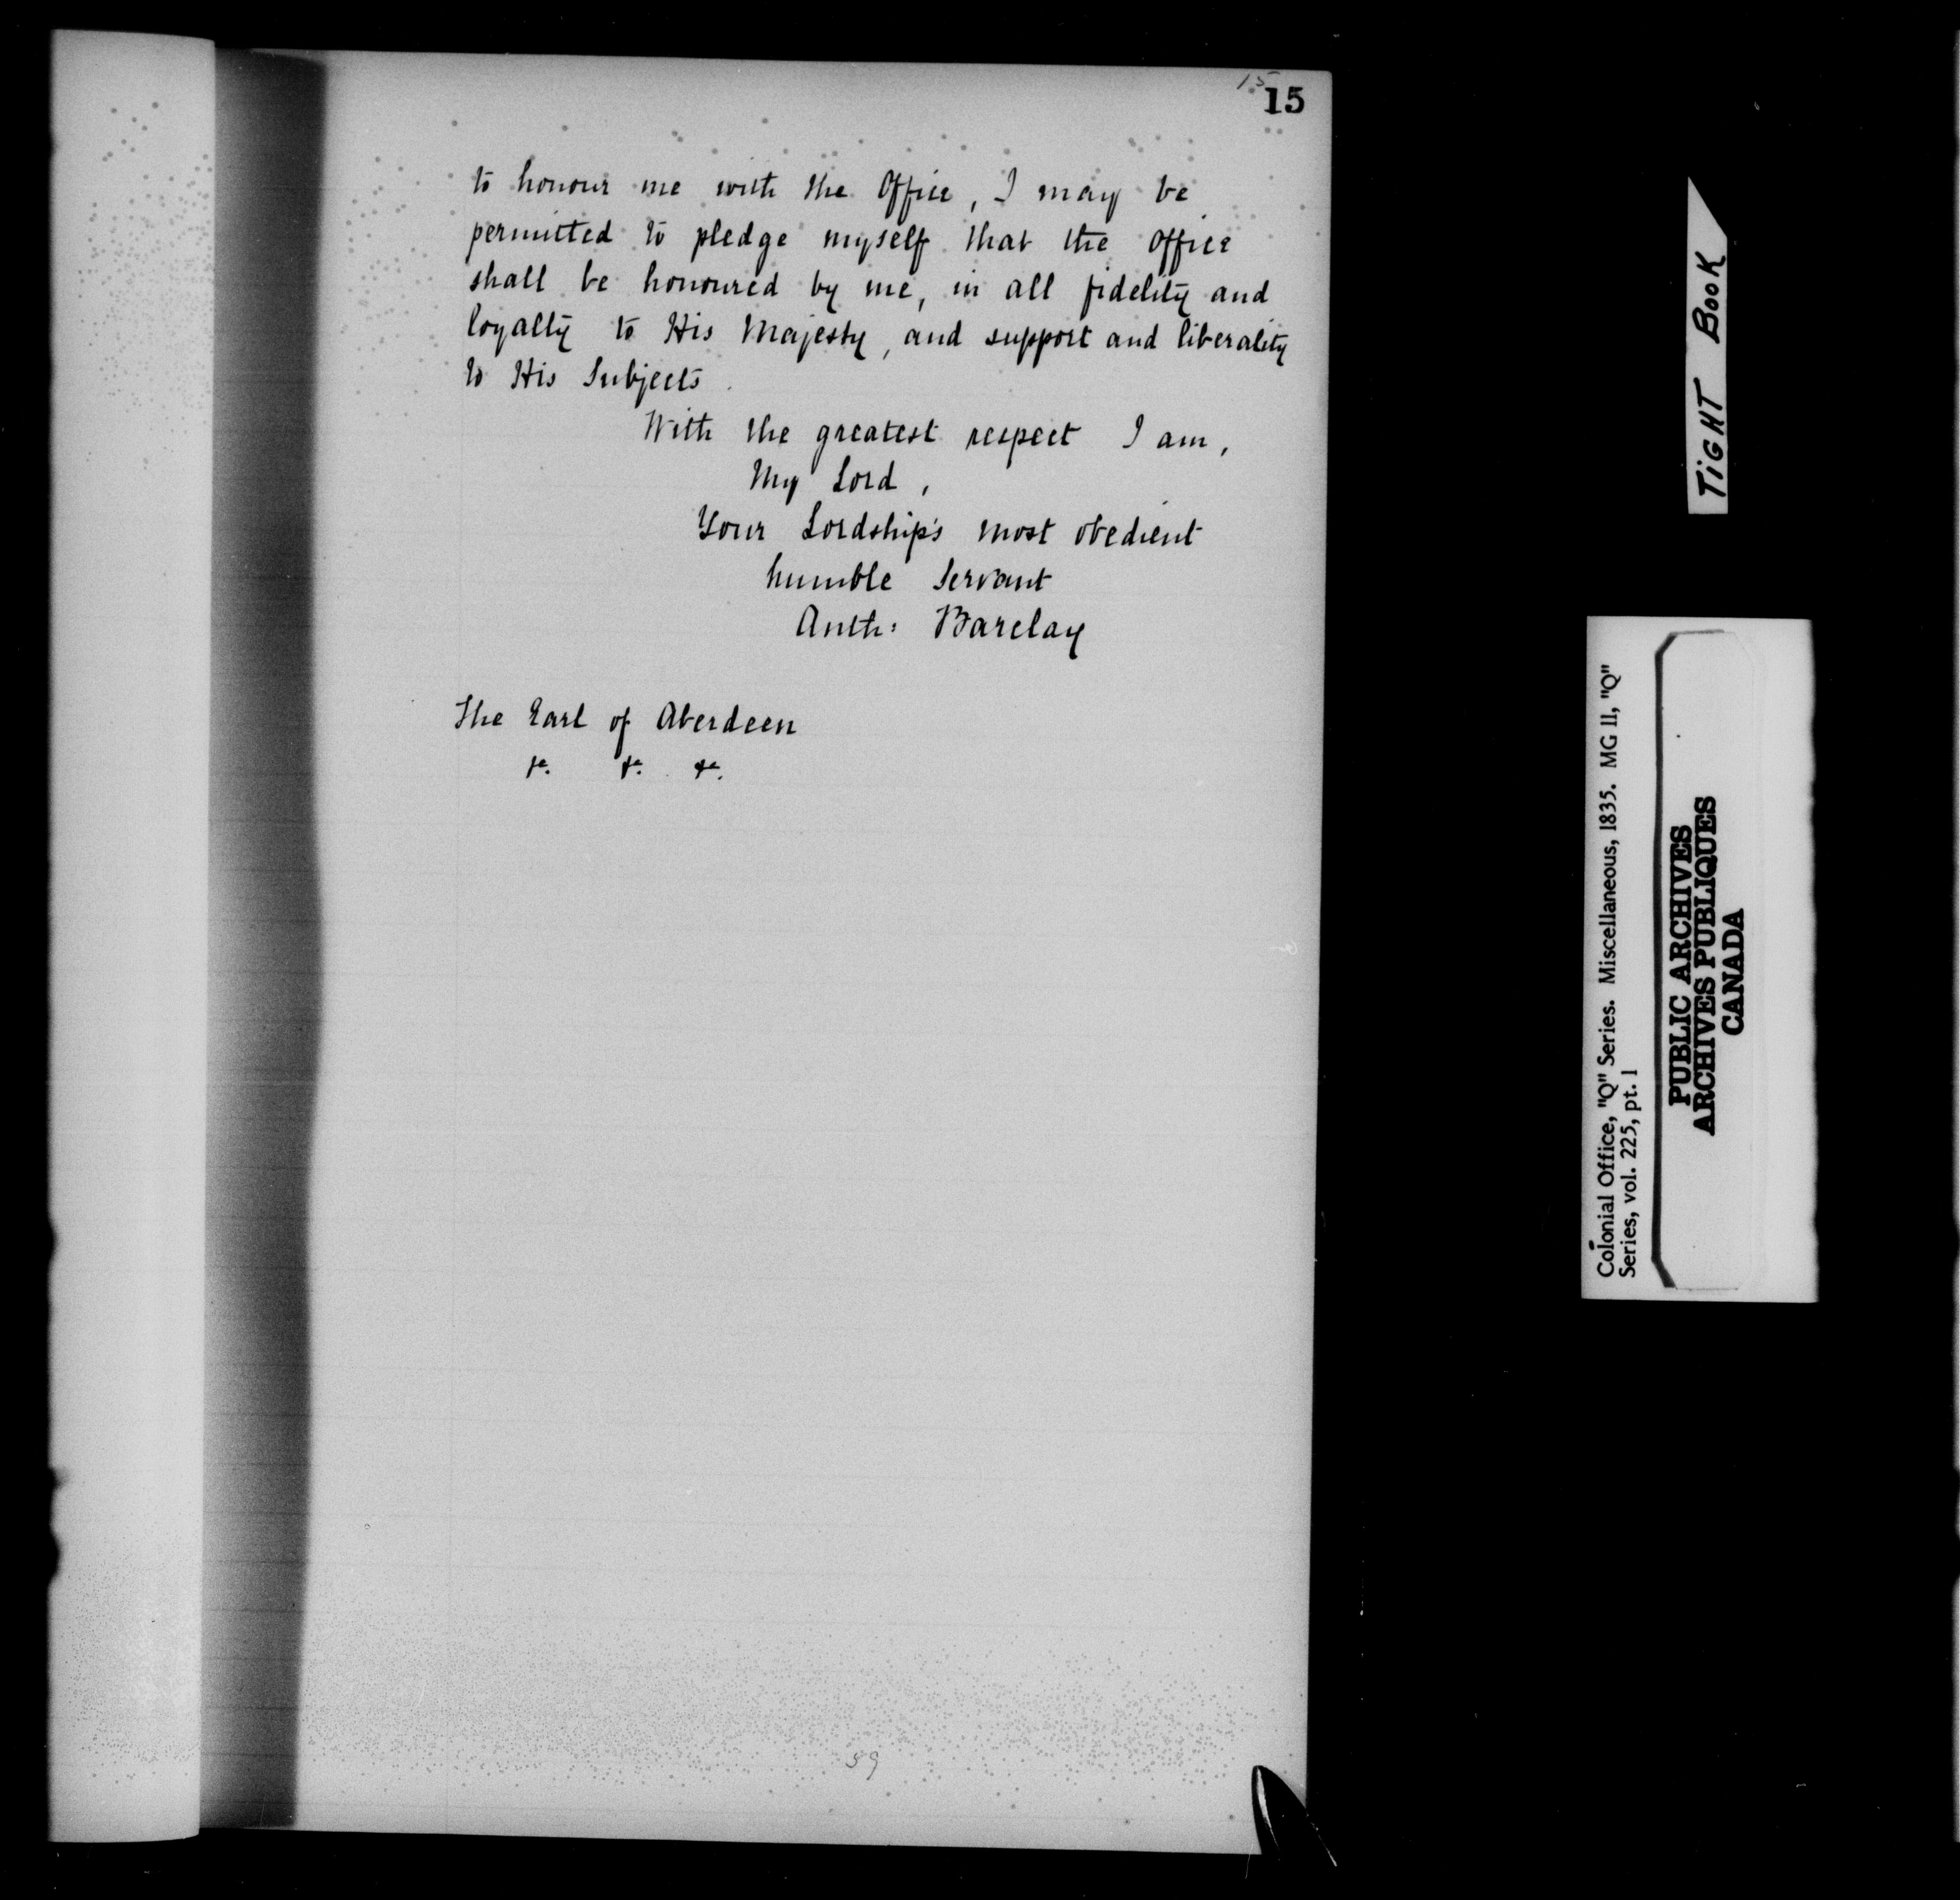 15
15
to honour me with the Office, I may be
permitted to pledge myself that the office
shall be honoured by me, in all fidelity and
loyalty to His Majesty, and support and liberality
to His Subjects.
With the greatest respect I am,
My Lord,
Your Lordship's most obedient
humble Servant
Anth: Barclay
The Earl of Aberdeen
&c. &c. &c.
59
TIGHT BOOK
Colonial Office, "Q" Series. Miscellaneous, 1835. MG 11, "Q"
Series, vol. 225, pt. 1
PUBLIC ARCHIVES
ARCHIVES PUBLIQUES
CANADA